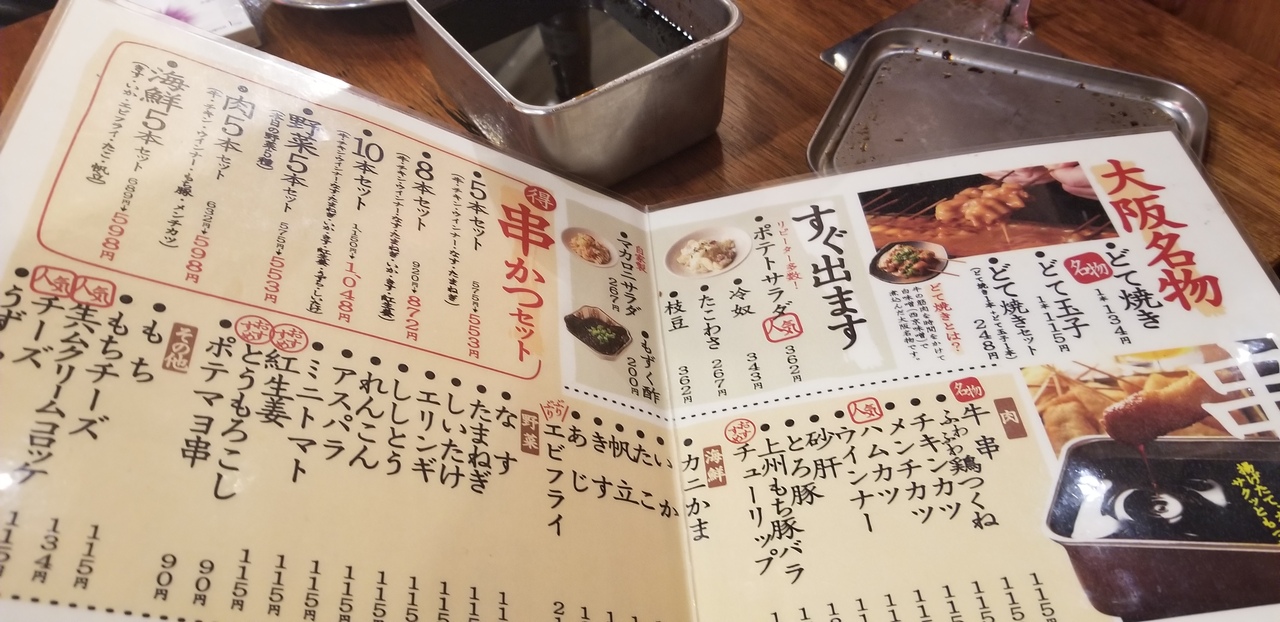 大阪名物
どて焼き
1本 134円
名物
どて玉子
1本 115円
どて焼きセット
(どて焼き1本+どて玉子1本)
248円
どて焼きとは?
牛の筋肉を時間をかけて
白味噌(西京味噌)で
煮込んだ大阪名物です。
すぐ出ます
リピーター多数!
ポテトサラダ
人気
362円
冷奴
343円
たこわさ
267円
枝豆
362円
自家製
マカロニサラダ
267円
もずく酢
200円
串
揚げたて
サクッとも
肉
名物
牛串
115円
ふわふわ鶏つくね
チキンカツ
メンチカツ
人気
ハムカツ
ウインナー
砂肝
とろ豚
上州もち豚バラ
おすすめ
チューリップ
海鮮
カニかま
いか
たこ
帆立
きす
あじ
ぷりぷり
エビフライ
得
串かつセット
5本セット
575円
553円
(牛・チキン・ウインナー・なす・たまねぎ)
8本セット
920円
872円
10本セット
1150円
1048円
野菜5本セット
(本日の野菜5種)
575円
553円
肉5本セット
632円
598円
海鮮5本セット
689円
598円
野菜
なす
たまねぎ
しいたけ
エリンギ
ししとう
れんこん
アスパラ
115円
ミニトマト
115円
おすすめ
紅生姜
115円
おすすめ
とうもろこし
115円
ポテマヨ串
90円
その他
もち
90円
もちチーズ
115円
人気
生ハムクリームコロッケ
134円
人気
チーズ
115円
うず